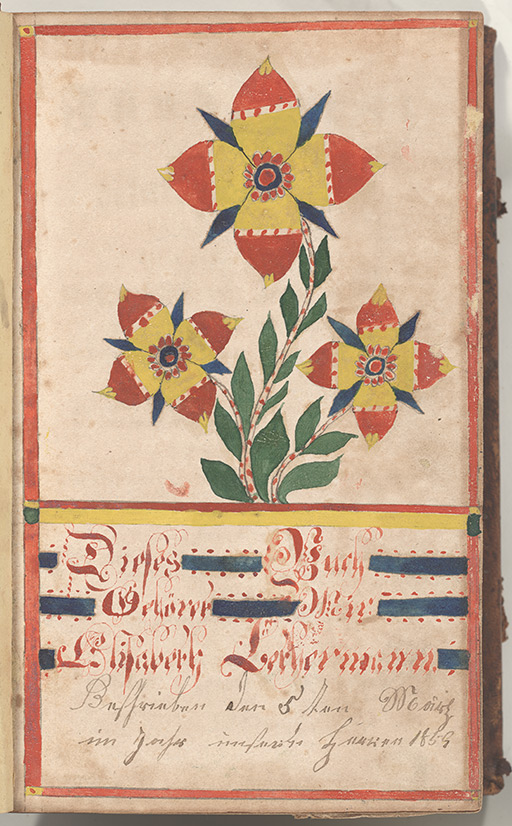 Dieses Buch
Gehöret Mir
Elisabeth Lechermann
Beschrieben den 5 ten März
im Jahr unsers Herren 18